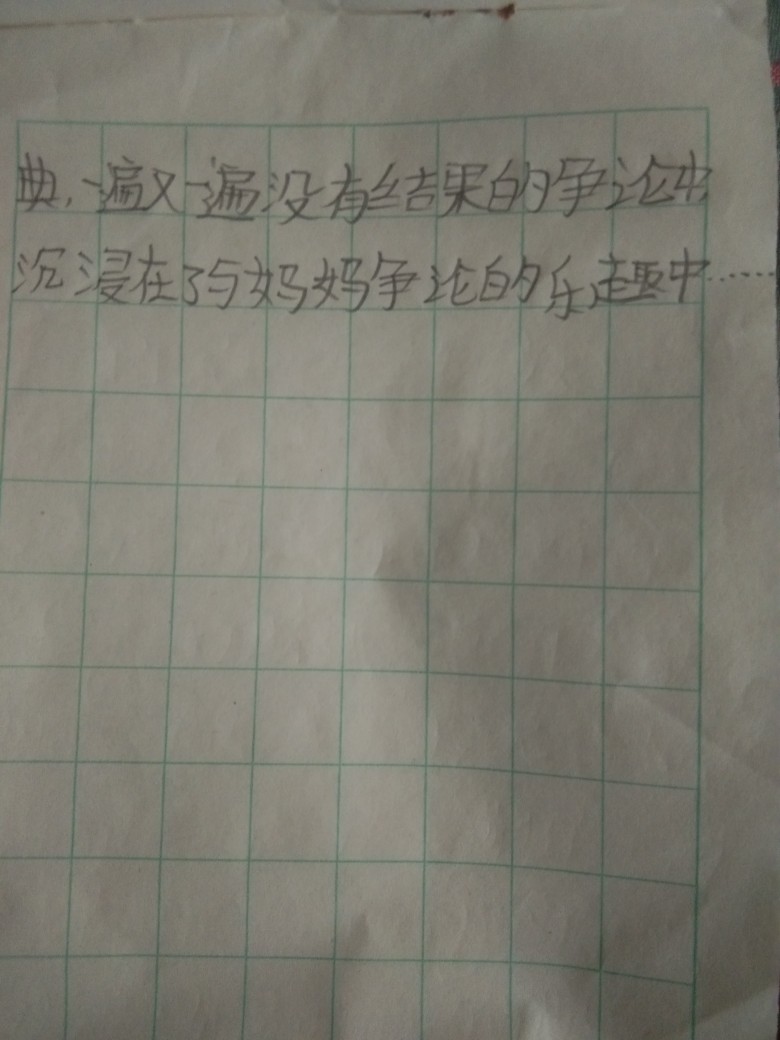 典，一遍又一遍没有结果的争论中
沉浸在了与妈妈争论的乐趣中……